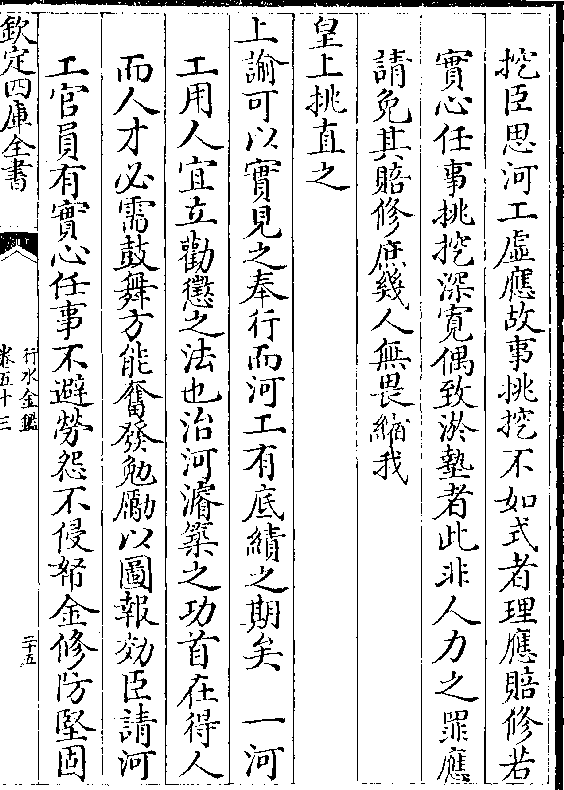 挖臣思河工虛應故事挑挖不如式者理應賠修若
實心任事挑挖深寬偶致淤墊者此非人力之罪應
請免其賠修庶幾人無畏縮我
皇上挑直之
上諭可以實見之奉行而河工有底績之期矣　一河
工用人宜立勸懲之法也治河濬築之功首在得人
而人才必需鼓舞方能奮發勉勵以圖報効臣請河
工官員有實心任事不避勞怨不侵帑金修防堅固
欽定四庫全書
行水金鑑
卷五十三
二十五